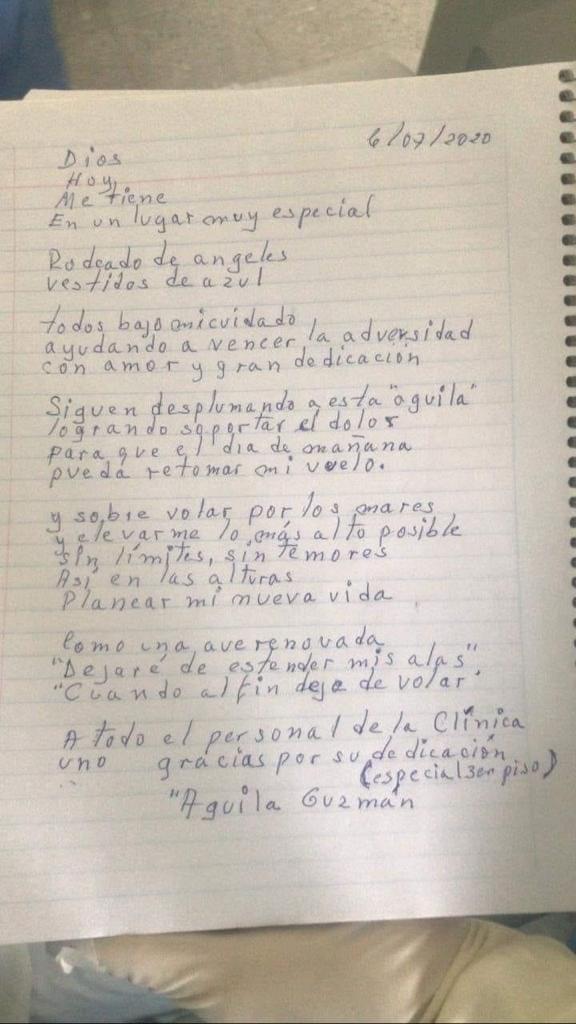 6/07/2020
Dios
Hoy
Me tiene
En un lugar muy especial
Rodeado de angeles
vestidos de azul
todos bajo micuidado
ayudando a vencer la adversidad
con amor y gran dedicación
Siguen desplumando a esta "aguila"
logrando soportar el dolor
para que el dia de mañana
pueda retomar mi vuelo.
y sobre volar por los mares
y elevarme lo más alto posible
sin límites, sin temores
Así en las alturas
Planear mi nueva vida
Como una ave renovada
"Dejaré de estender mis alas"
"Cuando al fin deje de volar"
A todo el personal de la Clínica
uno gracias por su dedicación
(especial 3er piso)
"Aguila Guzmán